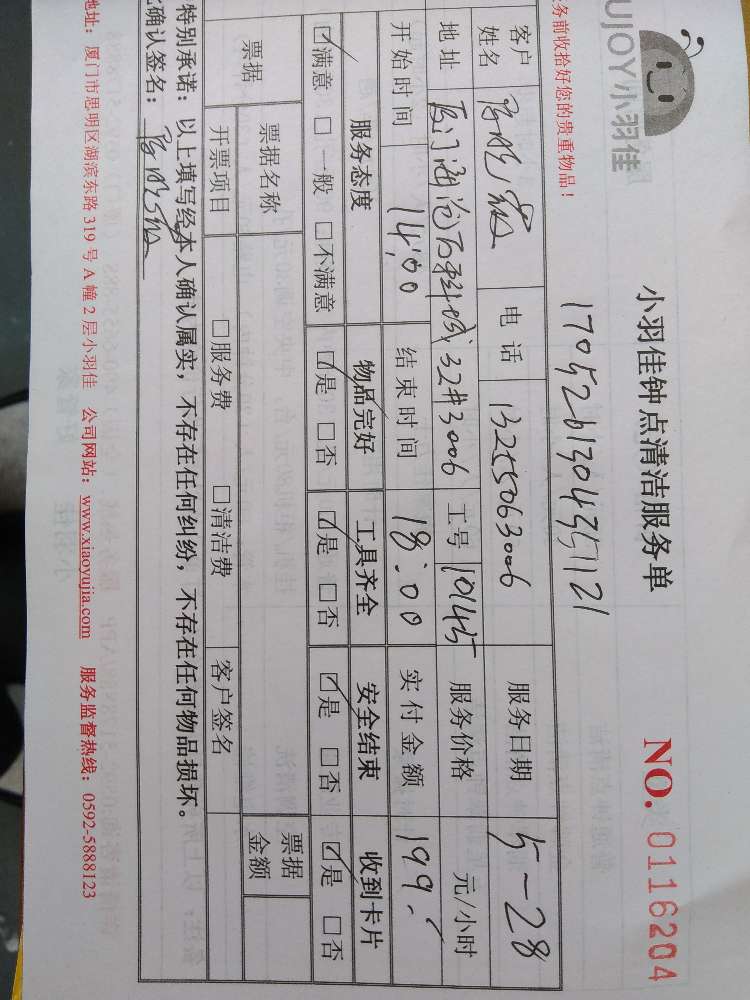 UJOY小羽佳
小羽佳钟点清洁服务单
NO. 0116204
务前收拾好您的贵重物品！
17052613043551121
客户姓名 电话 13255063006 服务日期 5-28
地址 厦门海沧 32#3006 工号 10145 服务价格 元/小时
开始时间 14:00 结束时间 18:00 实付金额 199.
服务态度 物品完好 工具齐全 安全结束 收到卡片
☑满意 □一般 □不满意 ☑是 □否 ☑是 □否 ☑是 □否 ☑是 □否
票据 票据名称 票据金额
开票项目 □服务费 □清洁费 客户签名
特别承诺：以上填写经本人确认属实，不存在任何纠纷，不存在任何物品损坏。
确认签名：
地址：厦门市思明区湖滨东路 319 号 A 幢 2 层小羽佳 公司网站：www.xiaoyujia.com 服务监督热线：0592-5888123